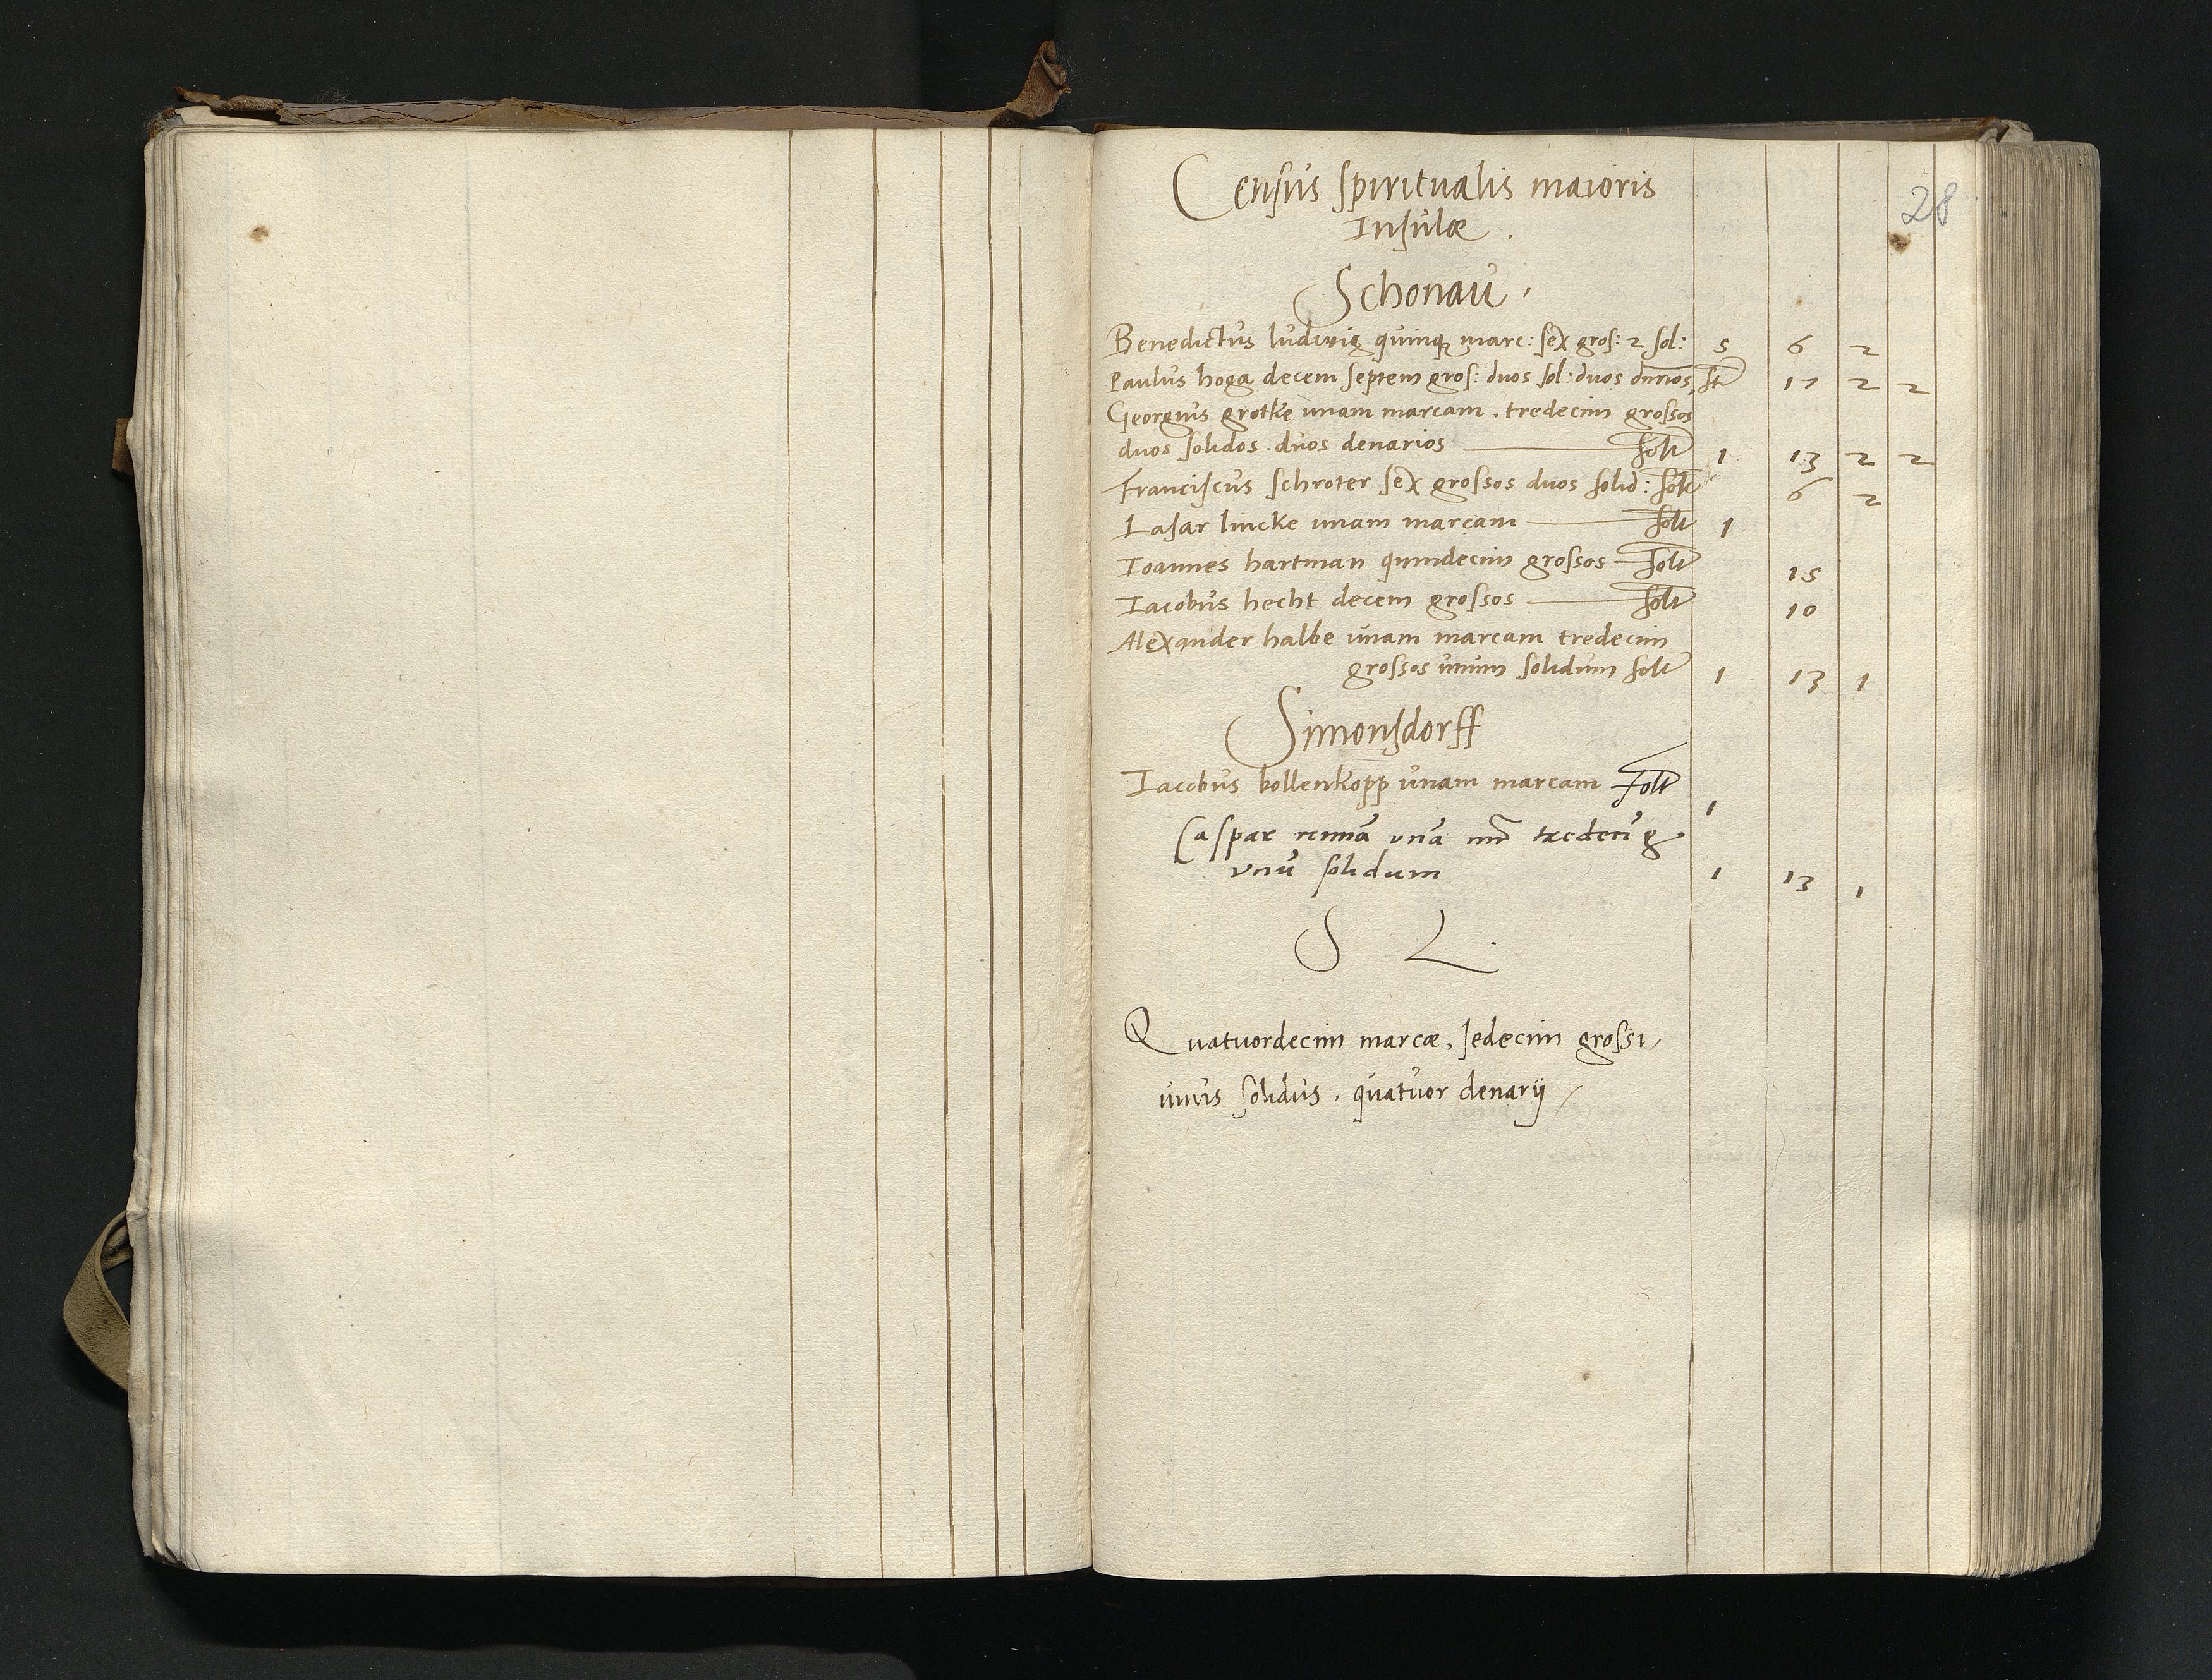 28
Census spiritualis maioris
Insulæ.
Schonau.
Benedictus ludwig quinq marc: sex gros: 2 sol: 5 6 2
Paulus hoga decem septem gros: duos sol: duos dnrios slt 17 2 2
Georgius grotke unam marcam. tredecim grossos
duos solidos. duos denarios solt 1 13 2 2
Franciscus schroter sex grossos duos solid: solt 6 2
Lasar lincke unam marcam solt 1
Ioannes hartman quindecim grossos solt 15
Iacobus hecht decem grossos solt 10
Alexander halbe unam marcam tredecim
grossos unum solidum solt 1 13 1
Simonsdorff
Iacobus bollenkopp unam marcam solt 1
Caspar unā tredeci g
unū solidum 1 13 1
S L.
Quatuordecim marcæ, sedecim grossi,
unus solidus. quatuor denarij